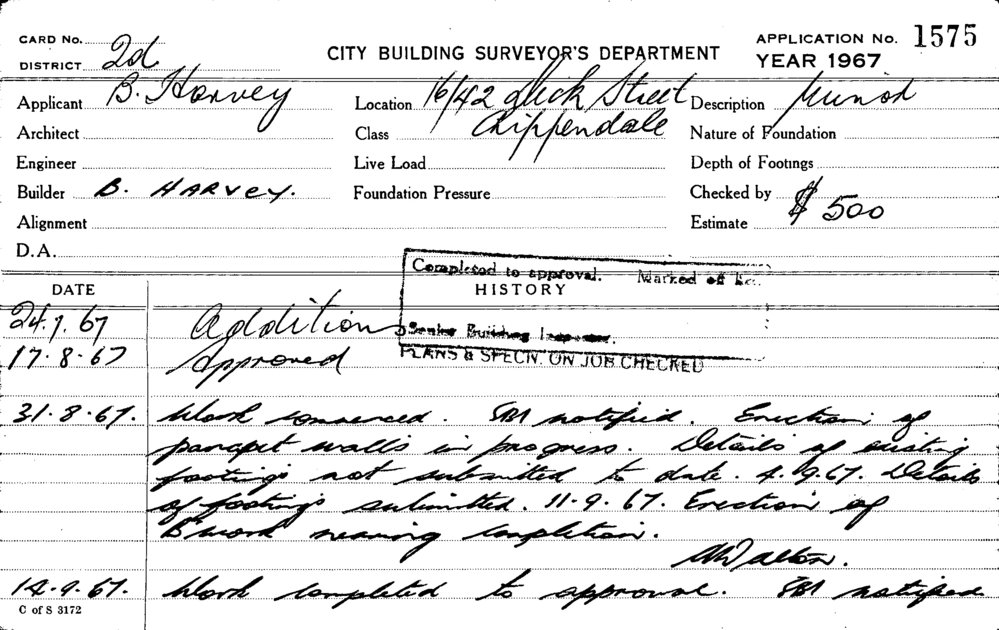 CARD No.
DISTRICT 2d
CITY BUILDING SURVEYOR'S DEPARTMENT
APPLICATION No. 1575
YEAR 1967
Applicant B. Harvey
Location 16/42 Dick Street
Chippendale
Description Minor
Architect
Class
Nature of Foundation
Engineer
Live Load
Depth of Footings
Builder B. HARVEY.
Foundation Pressure
Checked by
Alignment
Estimate $ 500
D.A.
Completed to approval. Marked off
DATE
HISTORY
24.7.67 Additions
Senior Building Inspector.
17.8.67 Approved
PLANS & SPECN. ON JOB CHECKED
31.8.67. Work commenced. SBI notified. Erection of
parapet walls in progress. Details of existing
footings not submitted to date. 4.9.67. Details
of footings submitted. 11.9.67. Erection of
B'work nearing completion.
14.9.67. Work completed to approval. SBI notified
C of S 3172